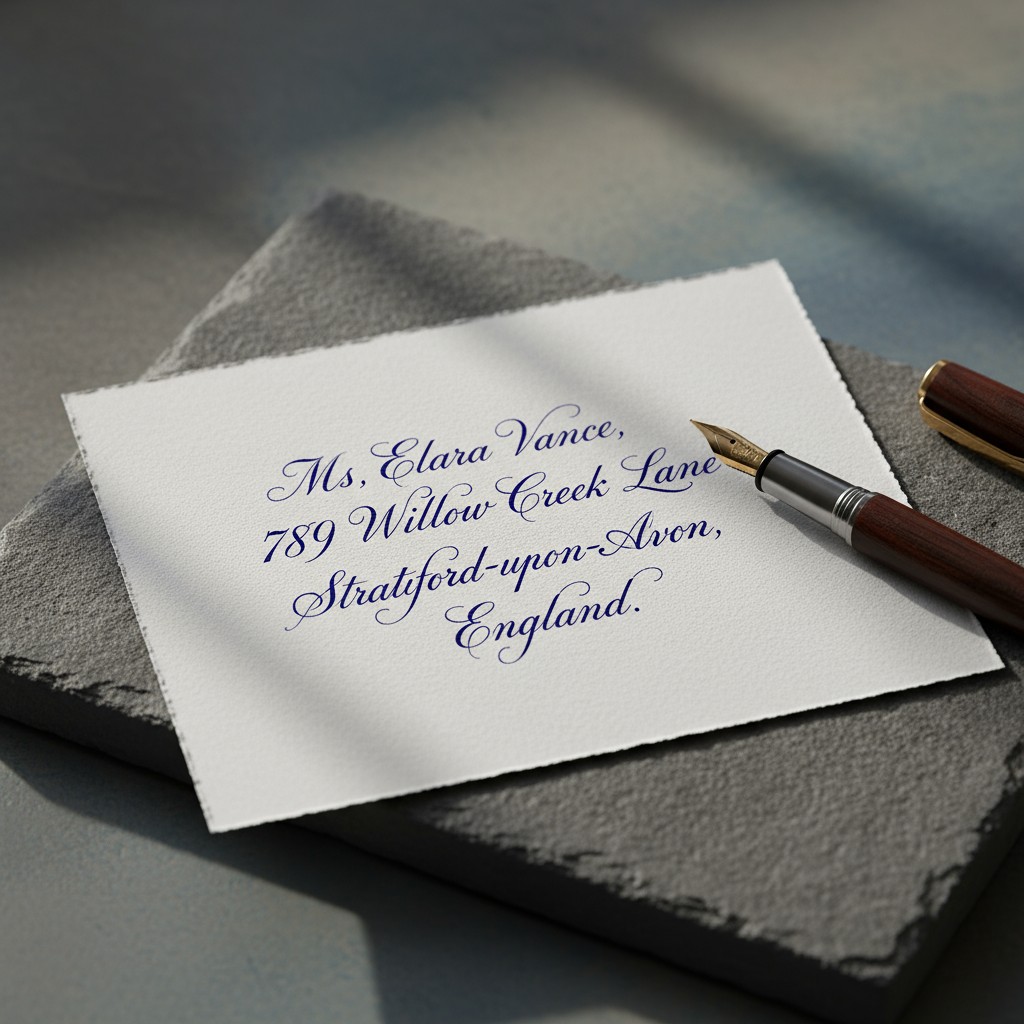 Ms, Elara Vance,
789 Willow Creek Lane
Stratford-upon-Avon,
England.